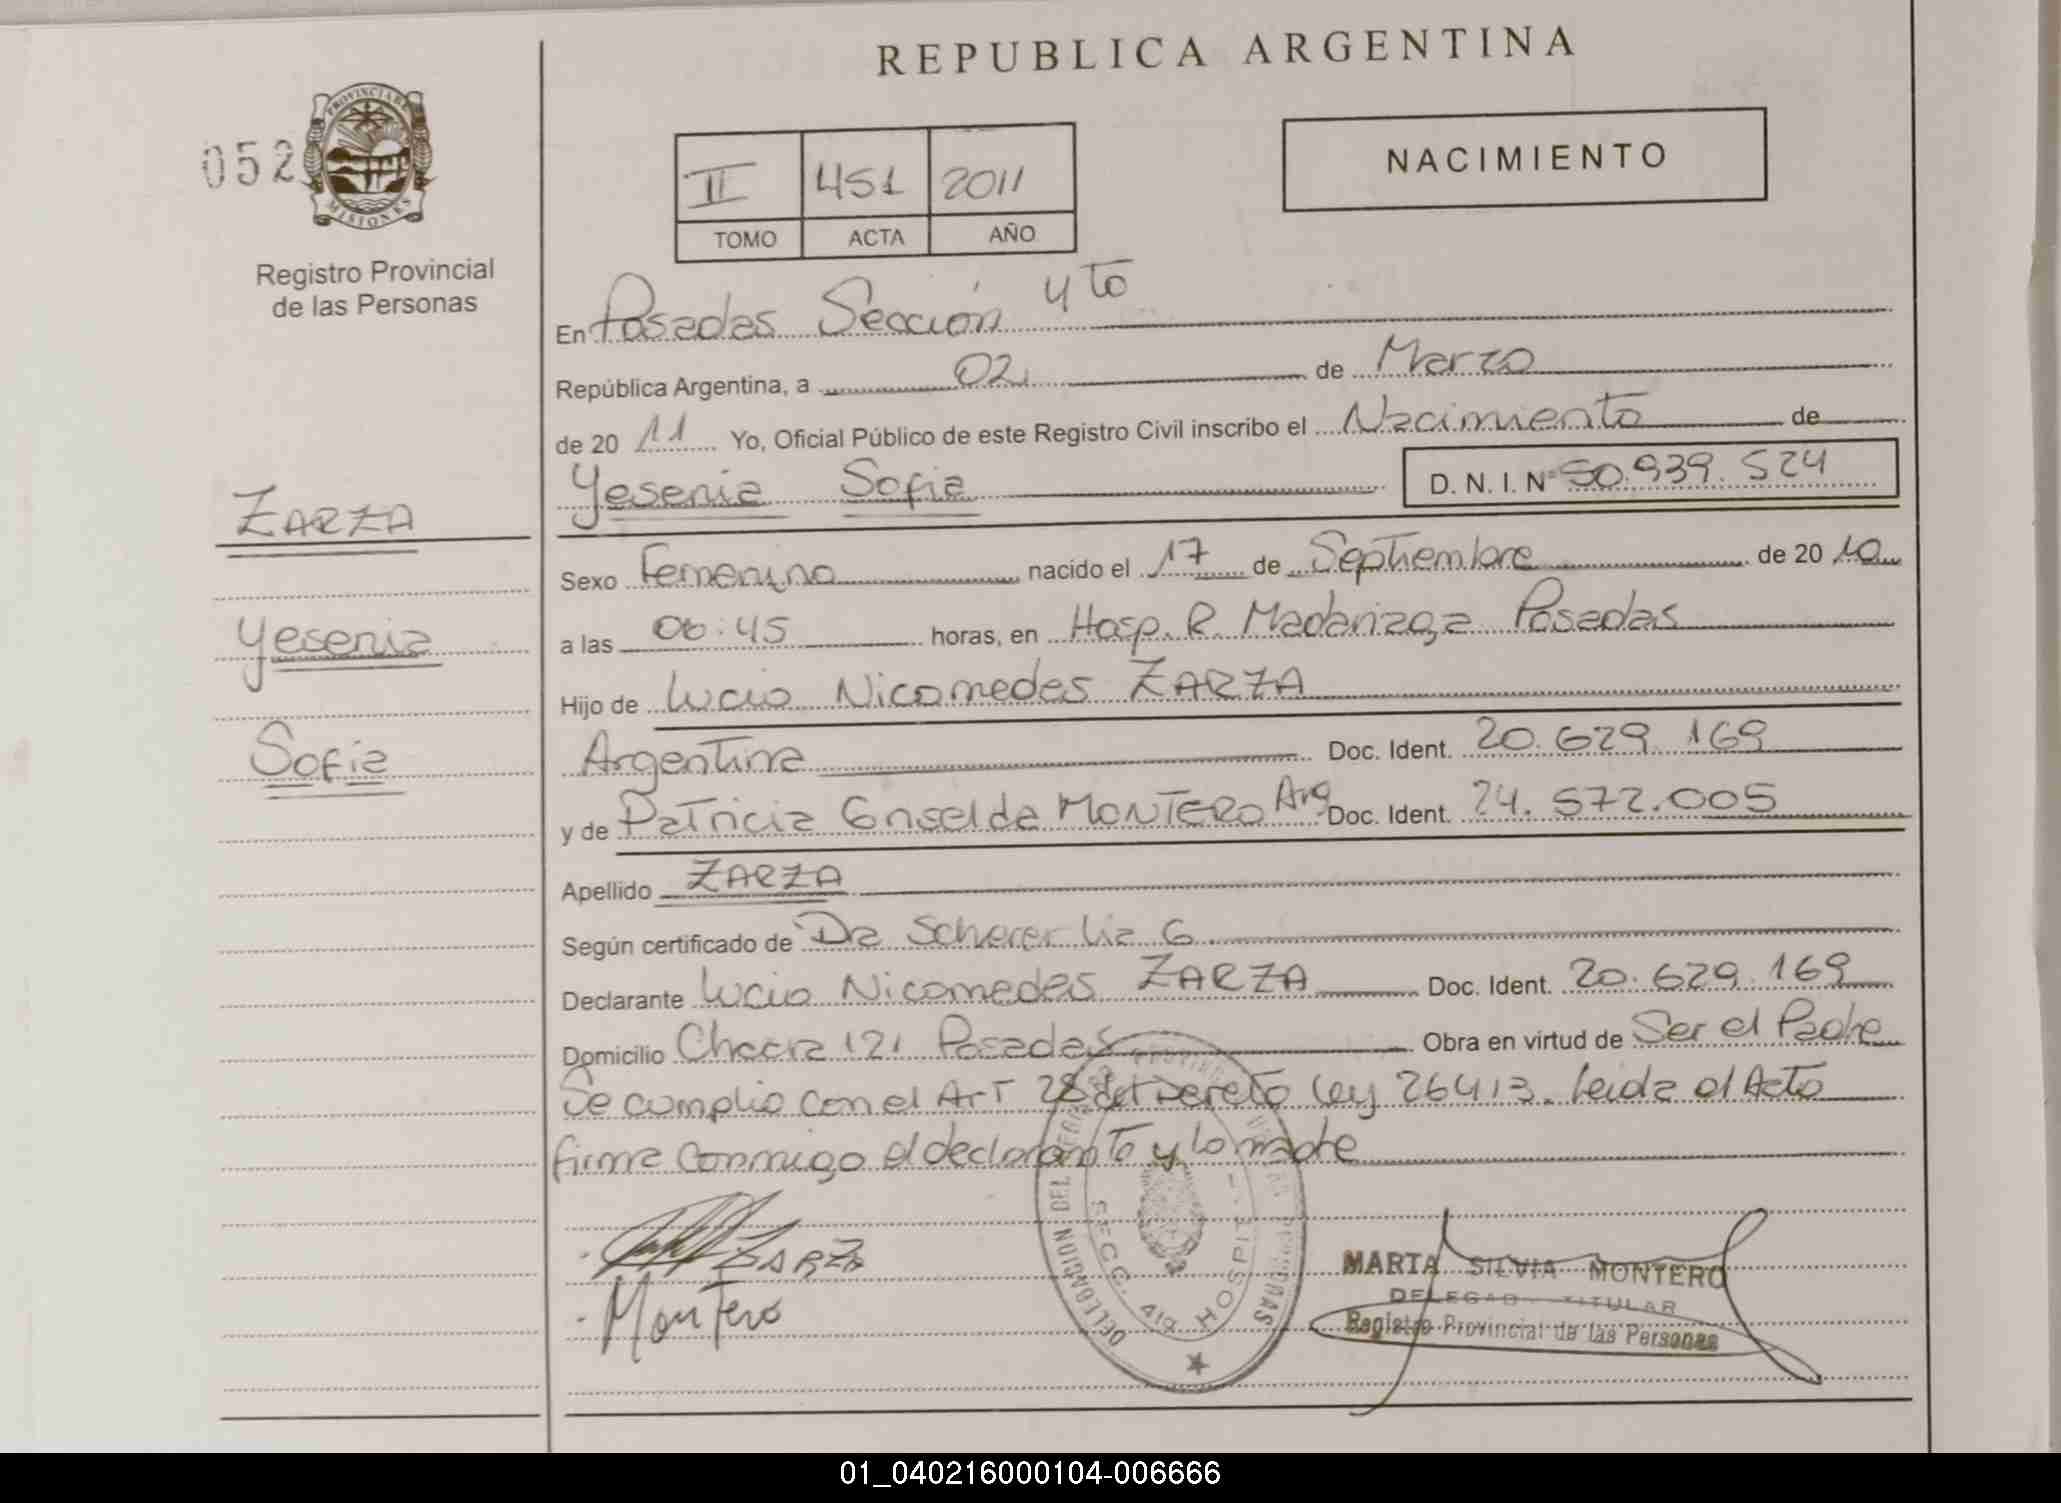 REPUBLICA ARGENTINA
052
PROVINCIA DE MISIONES
Registro Provincial
de las Personas
II 451 2011
TOMO ACTA AÑO
NACIMIENTO
En Posadas Sección 4to
República Argentina, a 02 de Marzo
de 2011 Yo, Oficial Público de este Registro Civil inscribo el Nacimiento de
Yesenia Sofia D. N. I. Nº 50.939.524
ZARZA
Yesenia
Sofia
Sexo Femenino nacido el 17 de Septiembre de 2010
a las 06:45 horas, en Hosp. R. Madariaga Posadas
Hijo de Lucio Nicomedes ZARZA
Argentina Doc. Ident. 20.629.169
y de Patricia Griselda MONTERO Arg Doc. Ident. 24.572.005
Apellido ZARZA
Según certificado de Dra Scherer Lia G
Declarante Lucio Nicomedes ZARZA Doc. Ident. 20.629.169
Domicilio Chacra 121 Posadas Obra en virtud de Ser el Padre
Se cumplio con el Art 28 del Decreto Ley 26413. Leida el Acta
firma conmigo el declarante y la madre
ZARZA
Montero
DELEGACION DEL REGISTRO PROVINCIAL DE LAS PERSONAS
SECC. 4ta HOSPITAL
MARTA SILVIA MONTERO
DELEGADA TITULAR
Registro Provincial de las Personas
01_040216000104-006666